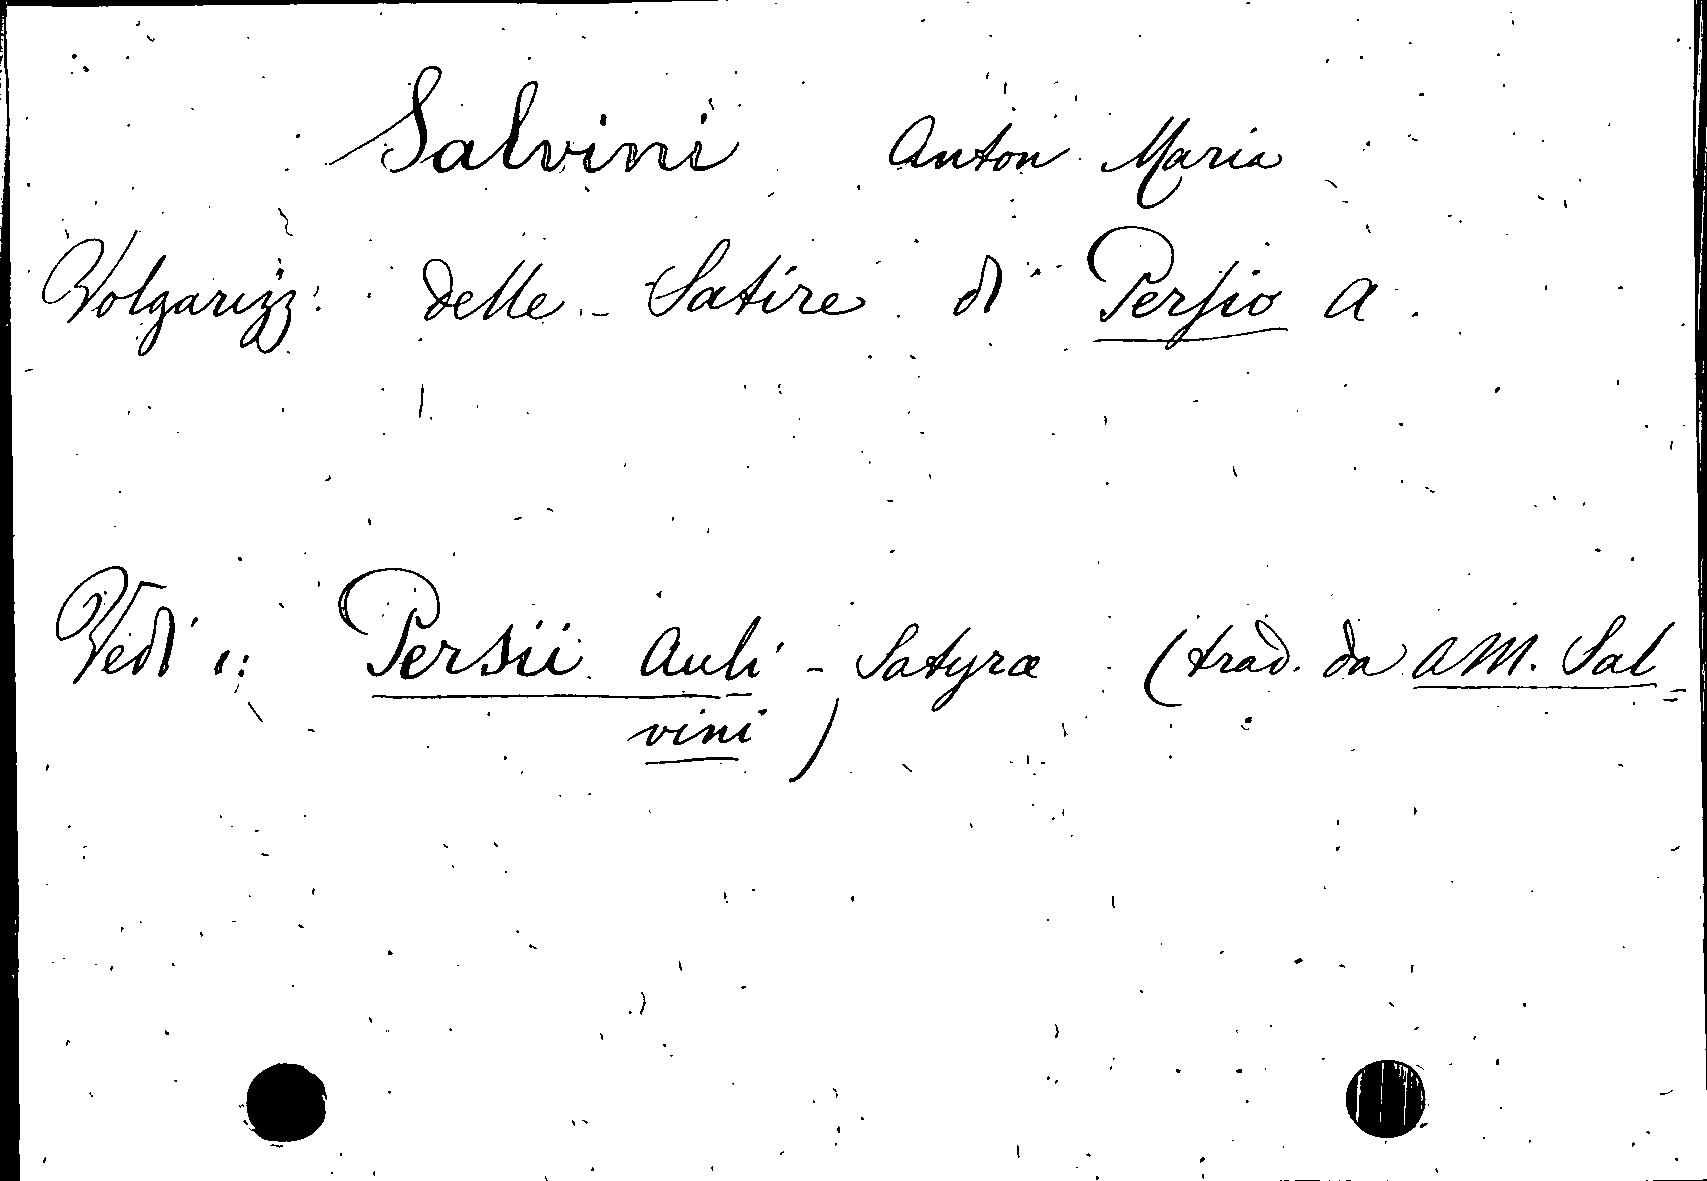 Salvini Anton Maria
Volgarizz: delle Satire di Persio A.
Vedi: Persii Auli - Satyræ (trad. da A M. Sal=
vini)